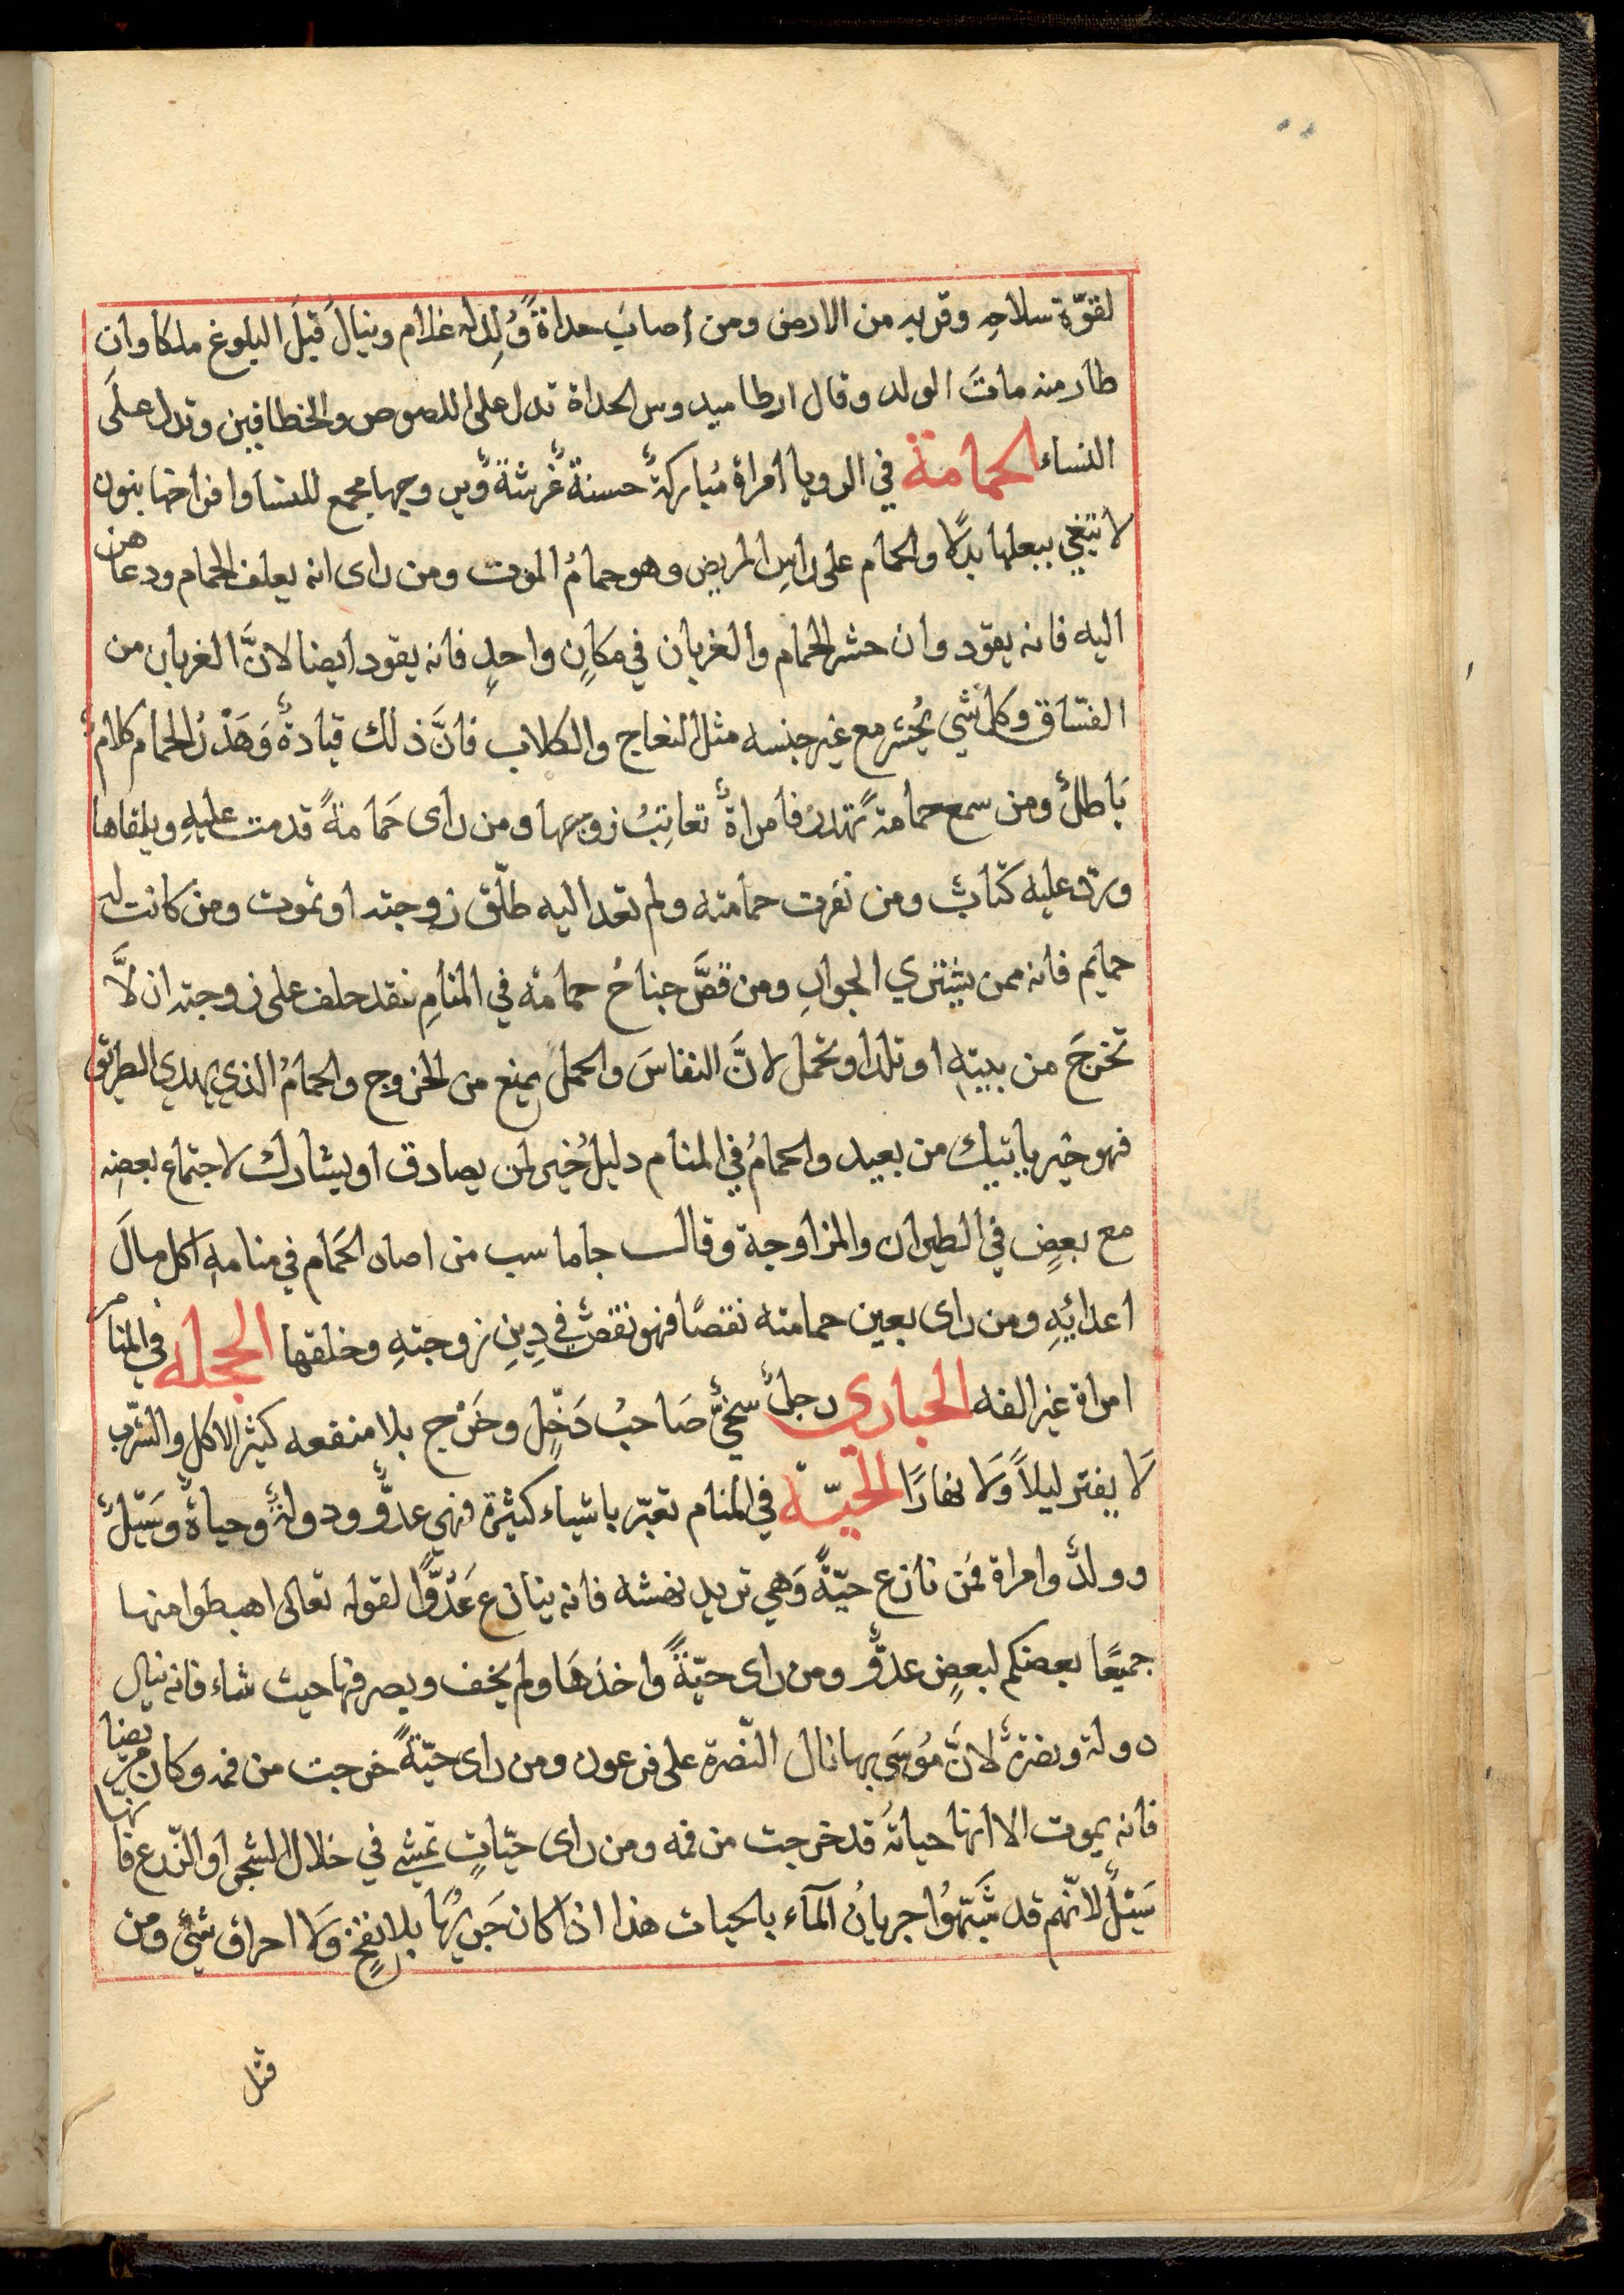 لقوّة سلاحِه وقربه من الارض ومن اصابَ حداةً وُلِدله غلام وينالَ قبلَ البلوغ ملكا وان
طار منه ماتَ الولد وقال ارطاميدوس الحداة تدل على اللصوص والخطافين وتدل علَى
النساء الحمامة في الرويا امراة مُباركةٌ حسنةٌ وبين وجهها مجمع للنسا وافراخها بنون
لا تبتغي ببعلها بدلًا والحمام على راسِ المريض وهو حمامُ الموت ومن راى انه يعلف الحمام ودعاهن
اليه فانه يقود وان حشر الحمام والغربان في مكانٍ واحدٍ فانه يقود ايضا لانَّ الغربان من
الفسّاق وكل شي يُحشر مع غير جنسه مثل النعاج والكلاب فانَّ ذلك قيادةٌ وَهَدْرُ الحمام كلامٌ
بَاطلٌ ومن سمع حمامةً تهدرُ فامراةٌ تعاتِبُ زوجها ومن راى حَمامةً قدمت عليهِ ويلقاها
ورد عليه كتابٌ ومن نفرت حمامته ولم تعد اليه طلّق زوجته او تموت ومن كانت له
حمايم فانه ممن يشتري الجوارِ ومن قصَّ جناحُ حمامة في المنامِ فقد حلف على زوجته ان لاَّ
تخرجَ من بيتهِ او تلد او تحمل لانَّ النفاسَ والحملَ يمنع من الخروج والحمامُ الذي يهدي الطريق
فهو خير ياتيك من بعيد والحمامُ في المنام دليل خُير لمن يصادق او يشارك لاجتماع بعضِه
مع بعضٍ في الطيران والمزاوجة وقالـــ جاماسب من اصاب الحَمام في منامهِ اكل مالَ
اعدائِهِ ومن راى بعين حمامته نقصًا فهو نقصٌ في دِينِ زوجتهِ وخلقها الحجله في المنام
امراة غير الفه الحبارى رجلٌ سخيٌّ صَاحبُ دَخْلٍ وخَرْج بلا منفعه كثير الاكل والشُرب
لَا يفتر ليلاً وَلا نهارًا الحيّة في المنام تعبّر باشياء كثيرة فهي عدوٌّ ودولةٌ وحياةٌ وسَيْلٌ
وولدٌ وامراة فمن نازع حيّةً وَهي تريد نهشه فانه ينازع عَدُوًّا لقوله تعالى اهبطوا منها
جميعًا بعضكم لبعضٍ عدوٌّ ومن راى حيّةً واخذهَا ولم يخف ويصرفها حيث شاء فانه ينال
دولة ونصرةٌ لانَّ مُوسَى بها نال النّصرة على فرعون ومن راى حيّةً خرجت من فمه وكان مريضا
فانه يموت الا انها حياتهُ قد خرجت من فمه ومن راى حيّاتٍ تمشي في خلال الشجر او الزّرع فانها
سَيْلٌ لانّهم قد شبَّهُوا جريانُ المآء بالحيات هذا اذا كان جَريُها بلا نفخٍ وَلا احراق شيٍ ومن
قتل